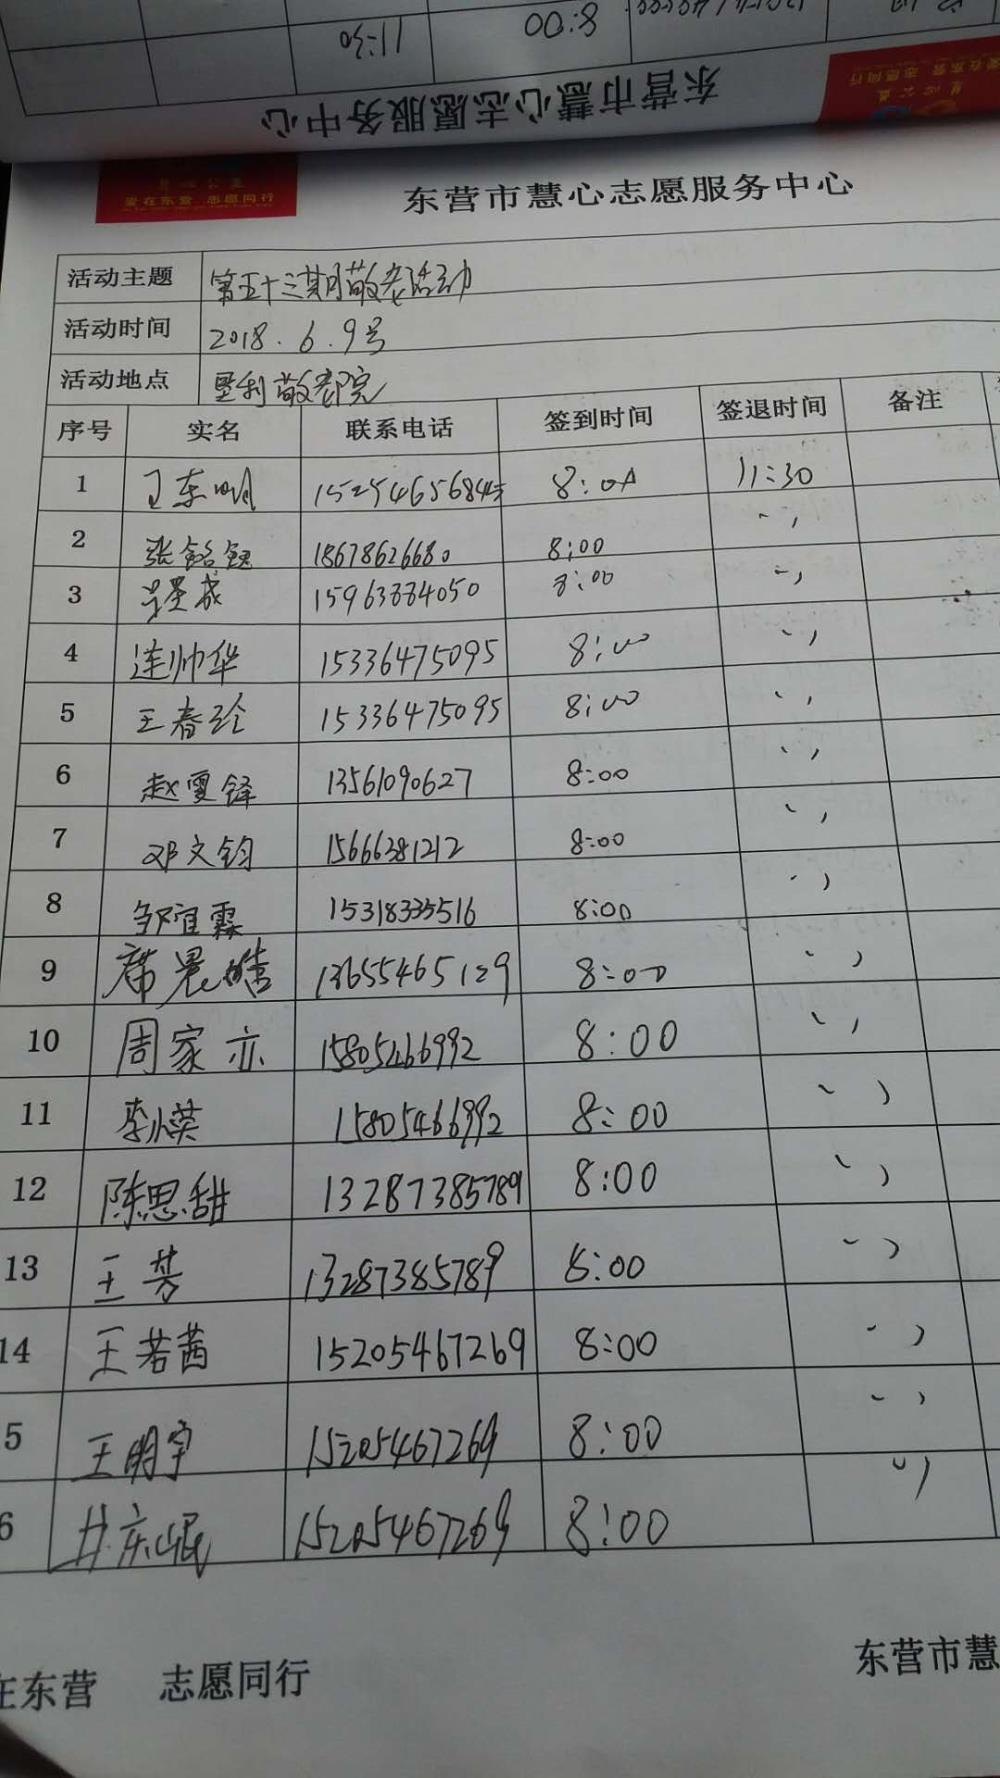 8:00
11:30
东营市慧心志愿服务中心
爱在东营 志愿同行
东营市慧心志愿服务中心
活动主题 第五十三期敬老活动
活动时间 2018.6.9号
活动地点 垦利敬老院
序号 实名 联系电话 签到时间 签退时间 备注
1 11:30
2 18678626680 8:00 〃
3 15963884050 8:00 〃
4 连帅华 15336475095 8:00 〃
5 王春玲 15336475095 8:00 〃
6 赵雯铎 13561090627 8:00 〃
7 邓文钧 15666381212 8:00 〃
8 邹宜霖 15318335516 8:00 〃
9 席晨皓 13655465129 8:00 〃
10 周家亦 15805466992 8:00 〃
11 李小英 15805466992 8:00 〃
12 陈思甜 13287385789 8:00 〃
13 王芳 13287385789 8:00 〃
14 王若茜 15205467269 8:00 〃
5 王明宇 15205467269 8:00 〃
6 15205467269 8:00 〃
在东营 志愿同行
东营市慧